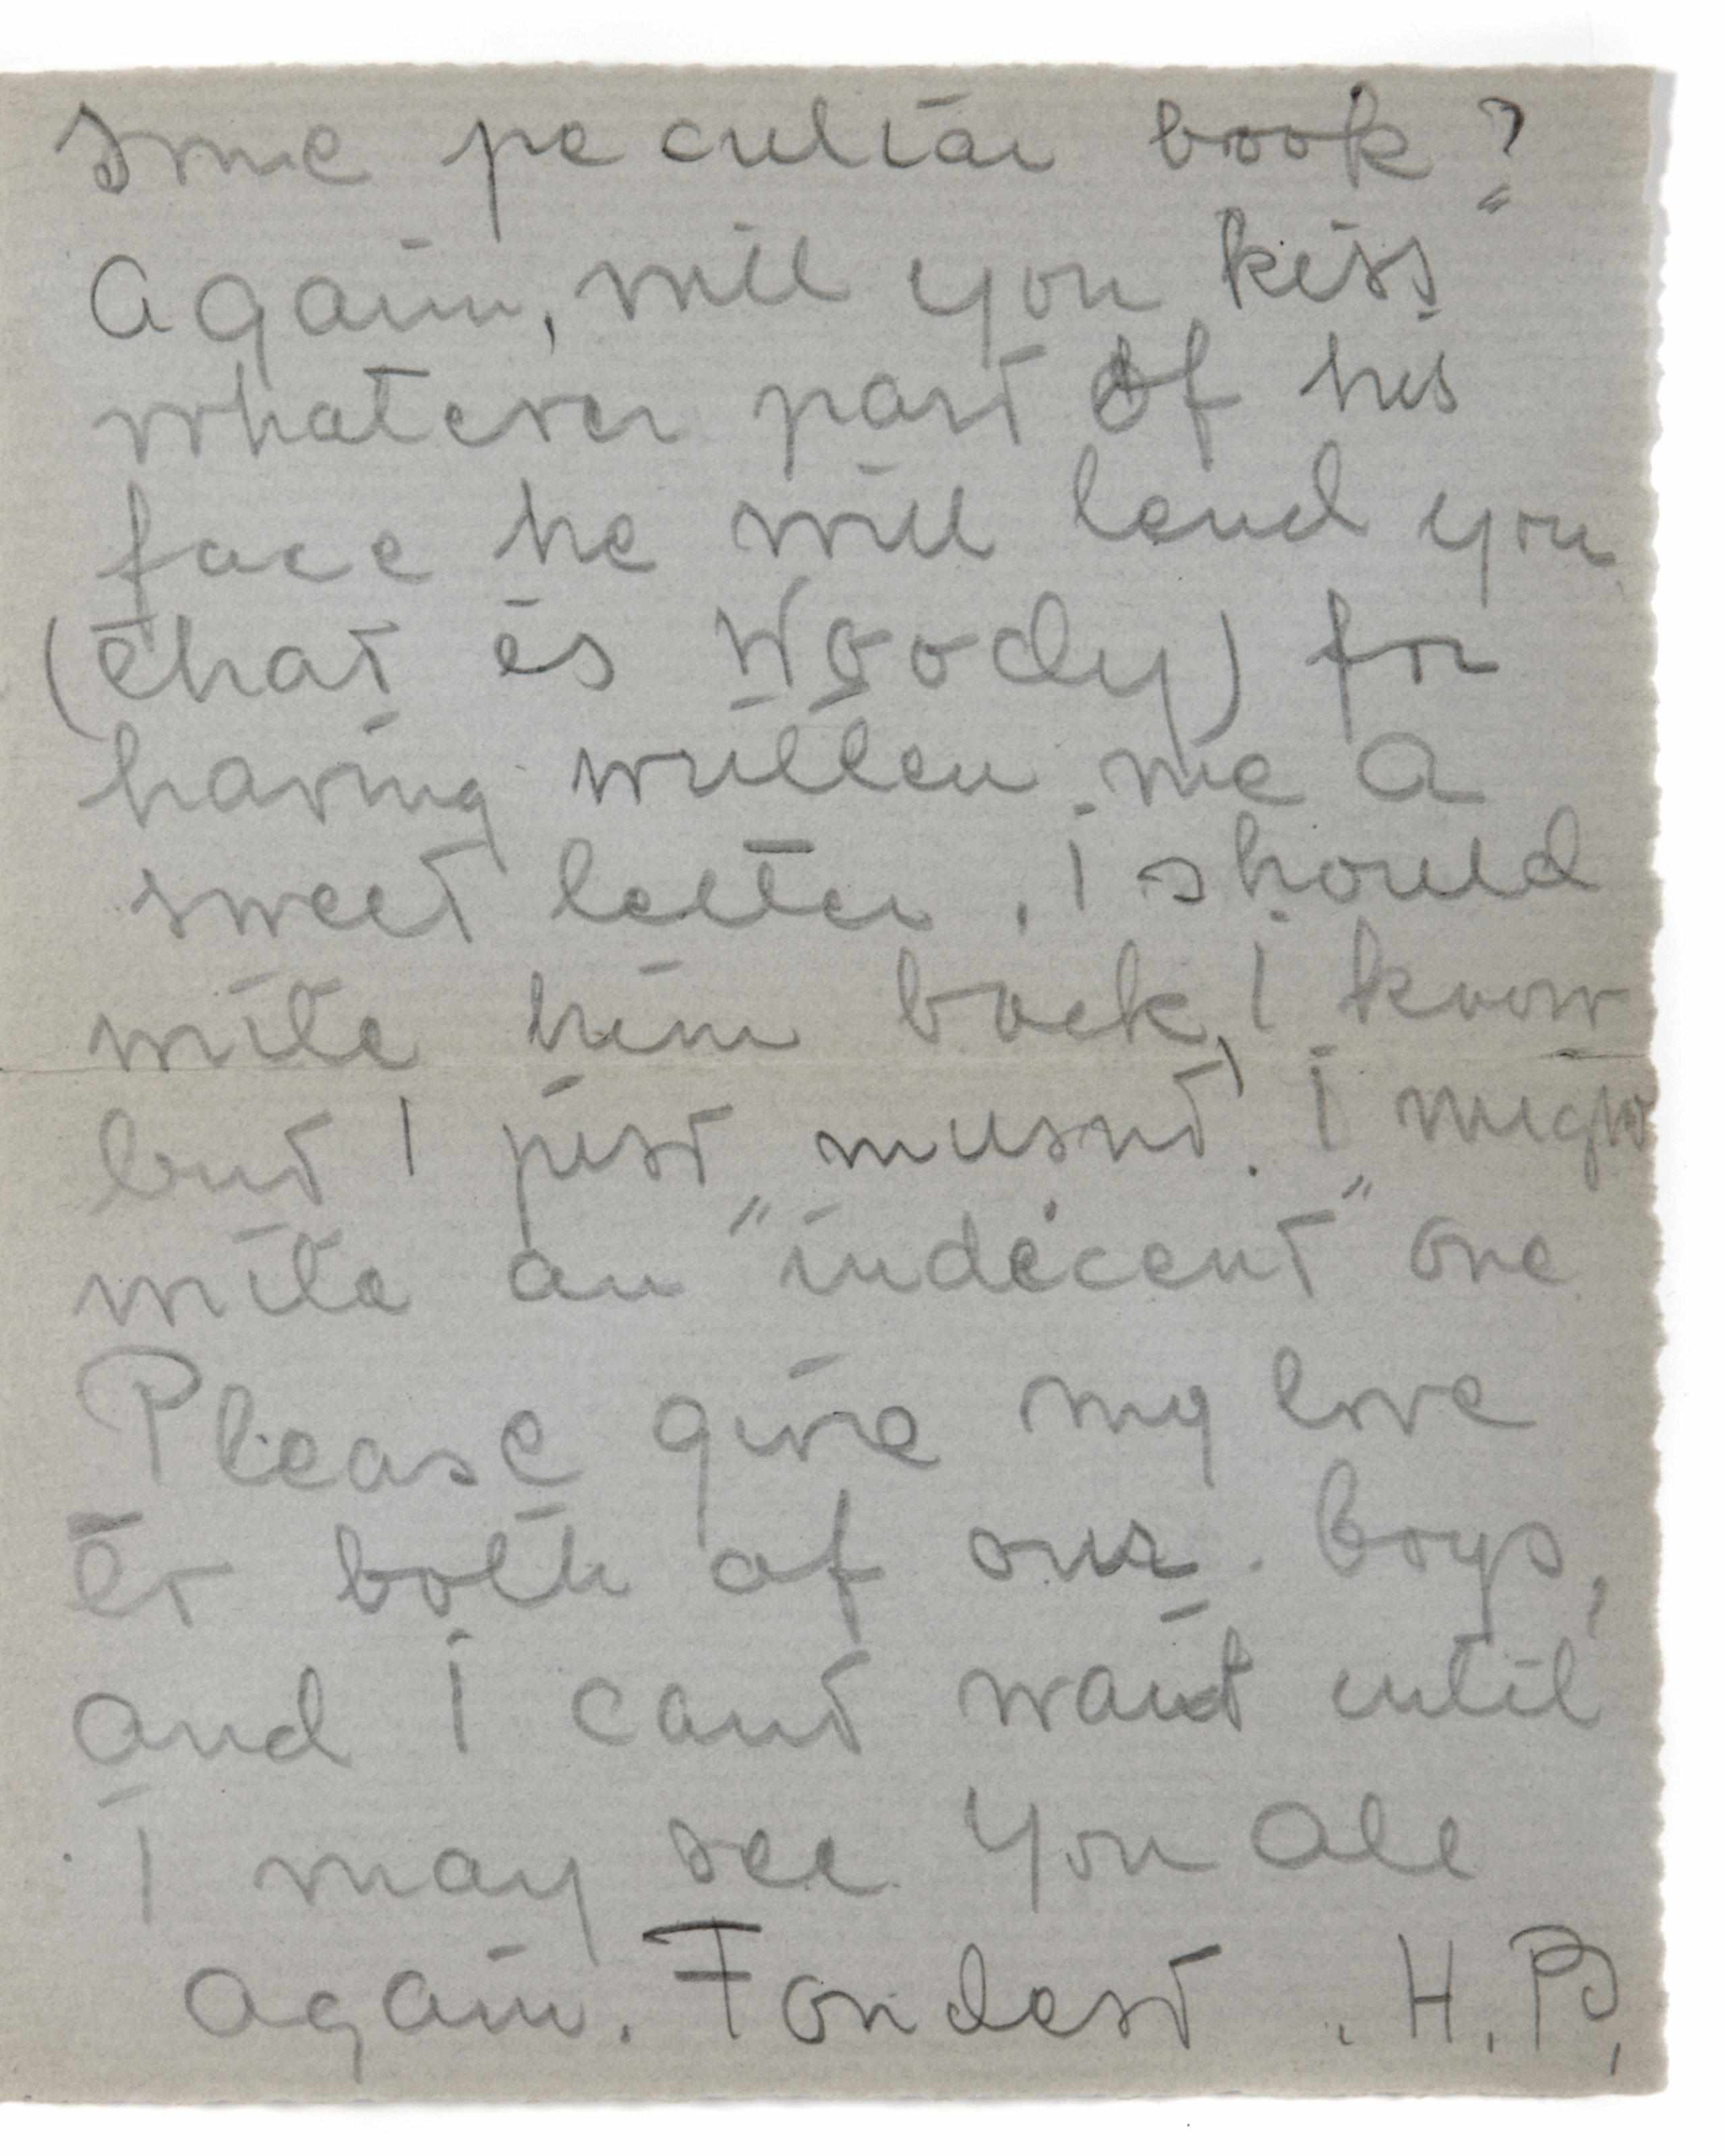 some peculiar book?"
Again, will you kiss
whatever part of his
face he will lend you
(that is Woody) for
having written me a
sweet letter. i should
write him back, i know
but i just musnt. i might
write an "indecent" one
Please give my love
to both of our boys,
and i cant wait until
i may see you all
again. Fondest. H.P.